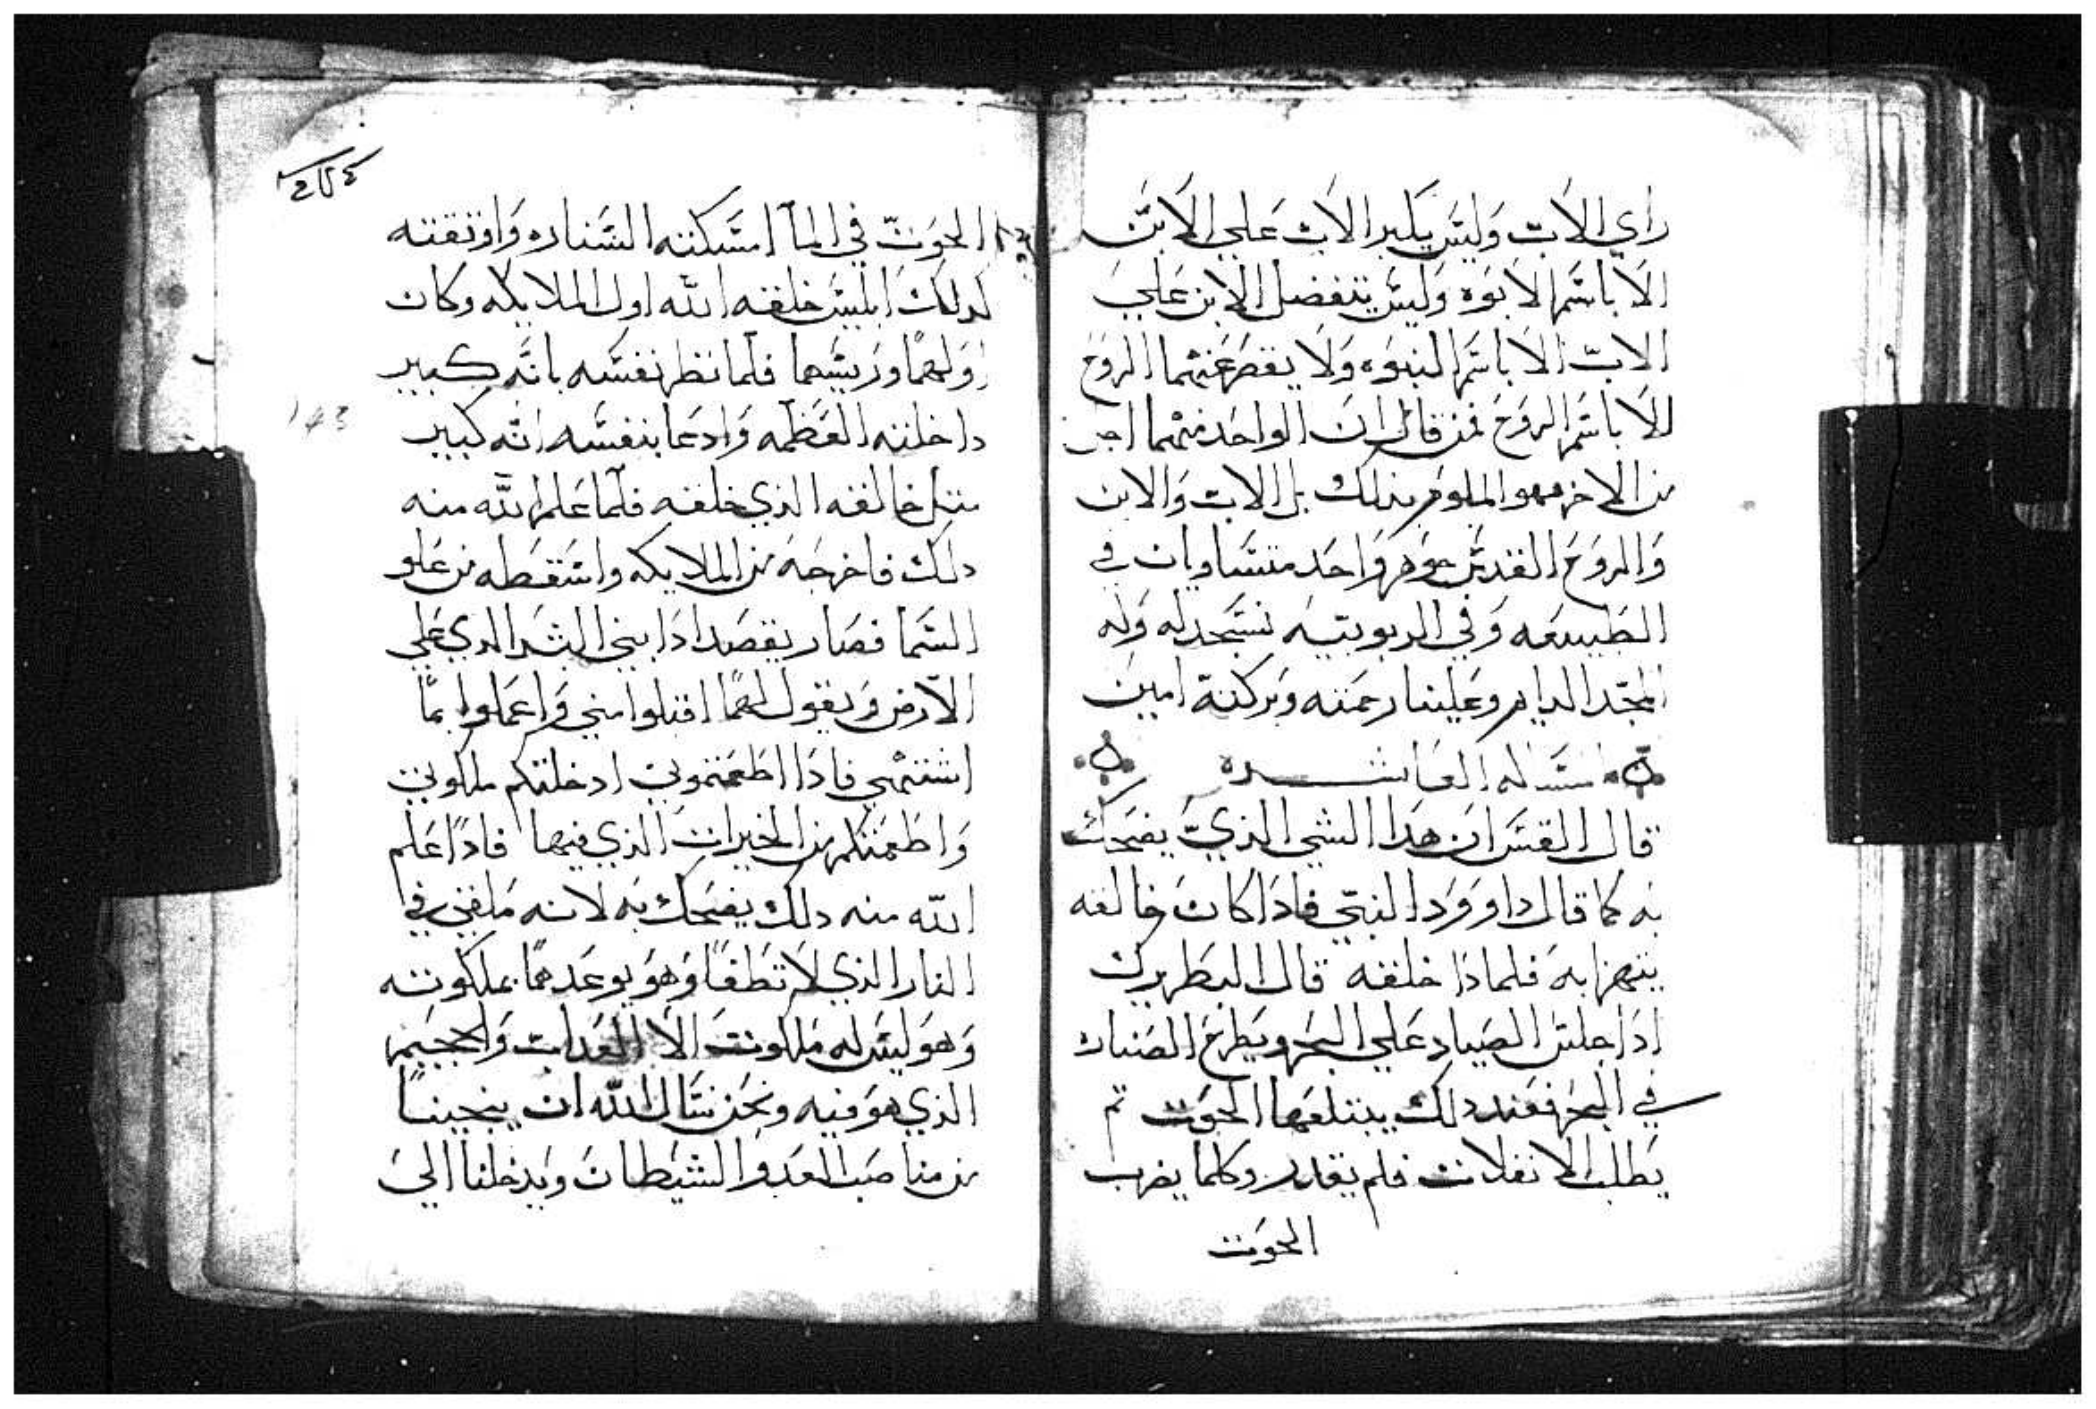 راي الاب وليس يكبر الاب علي الابن
الا باسم الابوه وليس يتفضل الابن علي
الاب الا باسم البنوه ولا يقص عنهما الروح
الا باسم الروح فمن قال ان الواحد منهما
من الاخر فهو الملوم بذلك بل الاب والابن
والروح القدس جوهر واحد متساويان في
الطبيعه وفي الربوبيه نسجد له وله
المجد الدايم وعلينا رحمته وبركته امين
مسله العاشره
قال القس ان هدا الشي الذي يضحك
به كما قال داوود النبي فاداكان خالقه
يتهزا به فلمادا خلقه قال البطريرك
ادا جلس الصياد علي البحر ويطرح الصناره
في البحر فعند دلك يبتلعها الحوت تم
يطلب الانفلات فلم يقدر وكلما يضرب
الحوت
الحوت في الما امسكته السناره واوتقته
كدلك ابليس خلقه الله اول الملايكه وكان
اولهم وريسهم فلما نظر نفسه بانه كبير
داخلته العظمه وادعا بنفسه انه كبير
متل خالقه الذي خلقه فلما علم الله منه
دلك فاخرجه من الملايكه واسقطه من علو
السما فصار يقصد ادا بني البشر الدي علي
الارض ويقول لهم اقبلوا مني واعملوا بما
اشتهي فادا اطعمتوني ادخلتكم ملكوتي
واطعمتكم من الخيرات الذي فيها فادا علم
الله منه دلك يضحك به لانه ملقي في
النار الذي لا تطفا وهو يوعدهم بملكوته
وهو ليس له ملكوت الا العداب والجحيم
الذي هو فيه ونحن نسال الله ان ينجينا
من مناصب العدوا الشيطان ويدخلنا الي
143